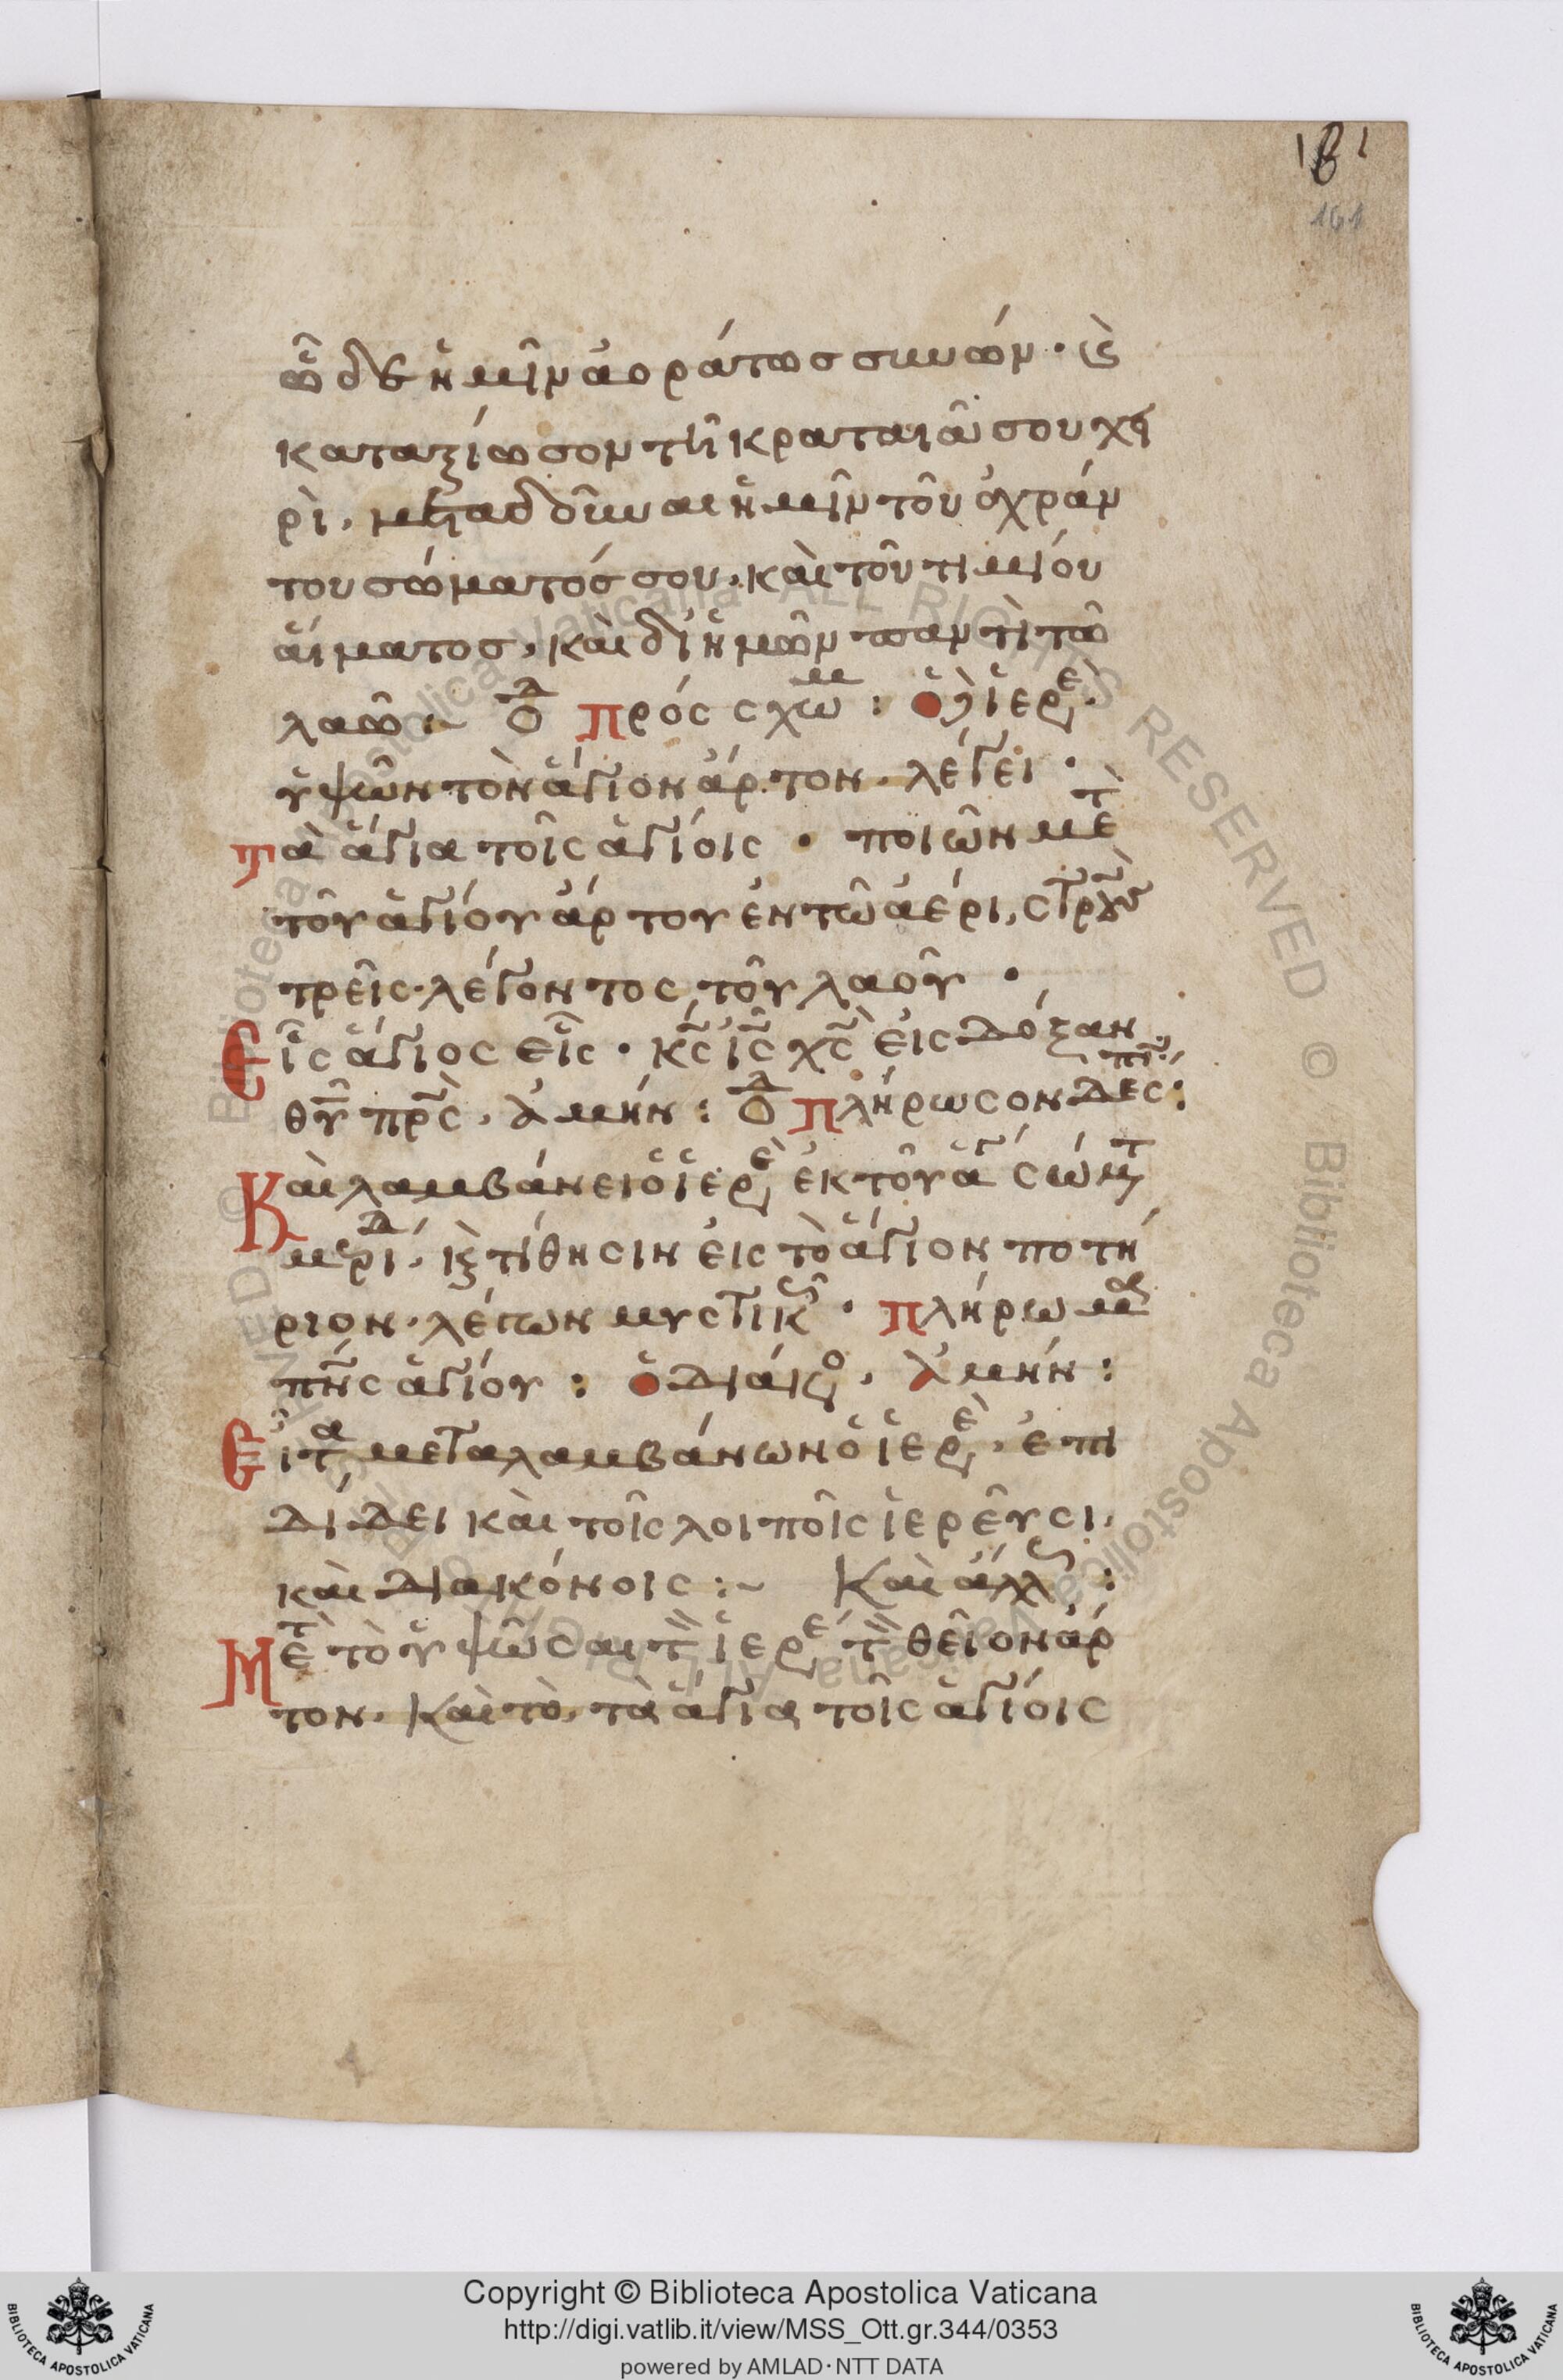 161
161
ὧδε ἡμῖν ἀοράτως συνών· (καὶ)
καταξίωσον τῆ κραταιᾶ σου χει
ρὶ, μεταδοῦναι ἡμῖν τοῦ ἀχράν
του σώματός σου, καὶ τοῦ τιμίου
αἵματος, καὶ δι' ἡμῶν παντὶ τῶ
λαῶ :~ Ὁ Δ Πρόσχωμ : ὁ ἱερε
ὑψῶν τὸν ἅγιον ἄρτον, λέγει ·
Τὰ ἅγια τοῖς ἁγίοις · ποιῶν μετ
τοῦ ἁγίου ἄρτου ἐν τῶ ἀέρι, στρου
τρεῖς· λέγοντος τοῦ λαοῦ ·
Εἷς ἅγιος εἷς · κς ις χς εἰς δόξαν
θυ πρς, ἀμήν : Ὁ Δ Πλήρωσον δες :
Καὶ λαμβάνει ὁ ἱερε ἐκ τοῦ ἁγ σώμτ
μερίδ, κ τίθησιν εἰς τὸ ἅγιον ποτή
ριον· λέγων μυστικ · Πλήρωμα
πνς ἁγίου : ὁ διάκο, Ἀμήν :
Εἶτα μεταλαμβάνων ὁ ἱερε, ἐπι
δίδει καὶ τοῖς λοιποῖς ἱερεῦσι,
καὶ διακόνοις :~ Καὶ ἄλλως :
Μετ τὸ ὑψῶσαι τ ἱερε τ θεῖον ἄρ
τον, καὶ τὸ, τὰ ἅγια τοῖς ἁγίοις
Copyright © Biblioteca Apostolica Vaticana
http://digi.vatlib.it/view/MSS_Ott.gr.344/0353
powered by AMLAD·NTT DATA
BIBLIOTECA APOSTOLICA VATICANA
BIBLIOTECA APOSTOLICA VATICANA